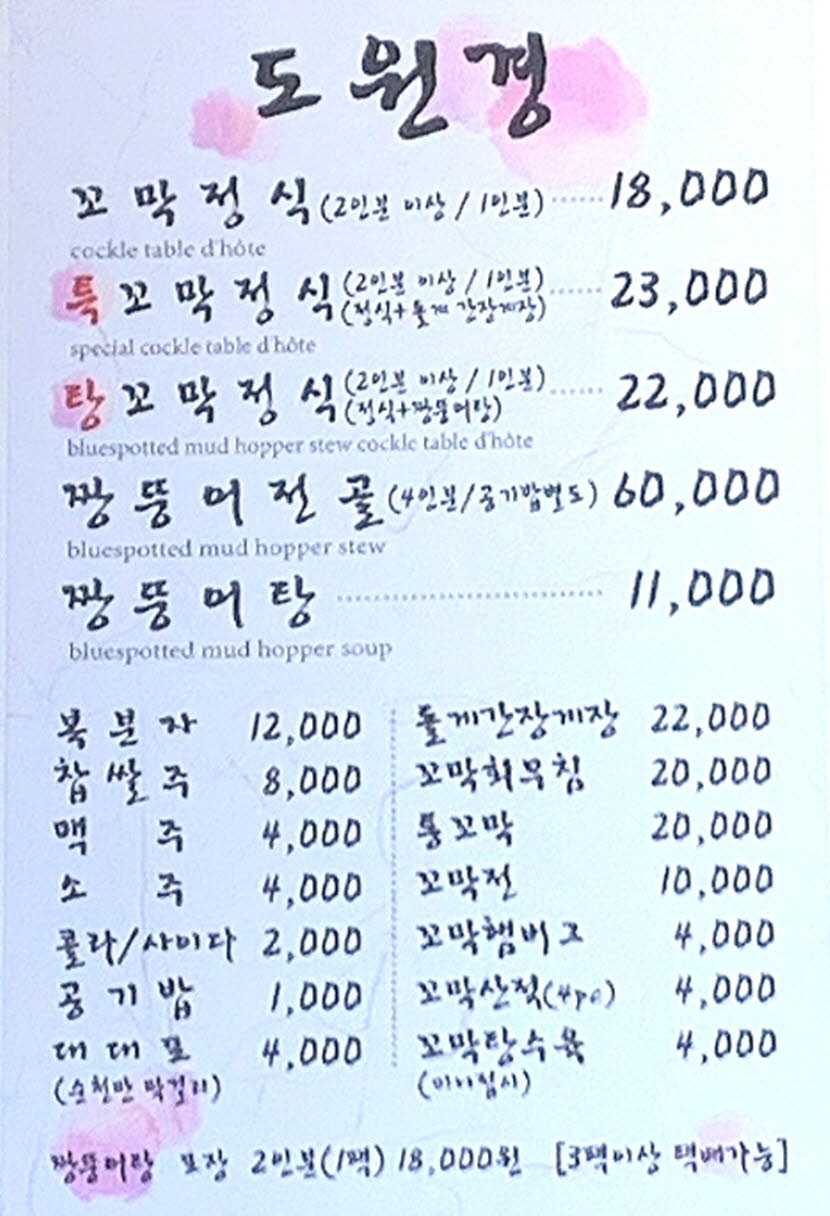 도원경
꼬막정식(2인분 이상/1인분)······18,000
cockle table d'hôte
특꼬막정식(2인분 이상/1인분)······23,000
(정식+돌게 간장게장)
special cockle table d'hôte
탕꼬막정식(2인분 이상/1인분)······22,000
(정식+짱뚱어탕)
bluespotted mud hopper stew cockle table d'hôte
짱뚱어전골(4인분/공기밥별도) 60,000
bluespotted mud hopper stew
짱뚱어탕······11,000
bluespotted mud hopper soup
복분자 12,000
찹쌀주 8,000
맥주 4,000
소주 4,000
콜라/사이다 2,000
공기밥 1,000
대대포 4,000
(순천만 막걸리)
돌게간장게장 22,000
꼬막회무침 20,000
통꼬막 20,000
꼬막전 10,000
꼬막햄버그 4,000
꼬막산적(4pc) 4,000
꼬막탕수육 4,000
(미니접시)
짱뚱어탕 포장 2인분(1팩) 18,000원 [3팩이상 택배가능]